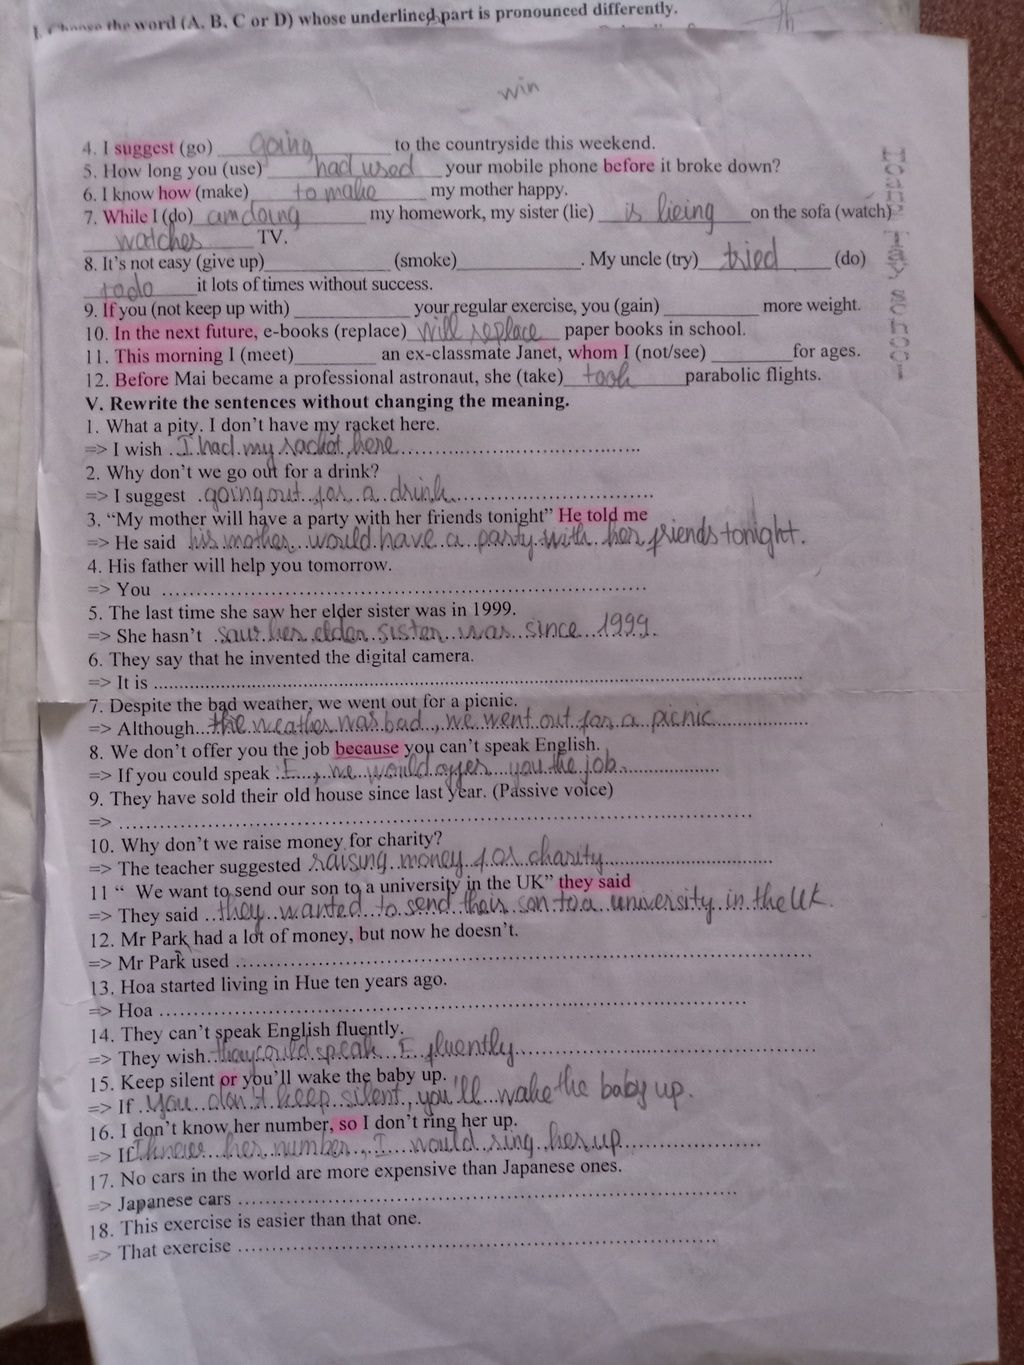 I. Choose the word (A, B, C or D) whose underlined part is pronounced differently.
win
4. I suggest (go) going to the countryside this weekend.
5. How long you (use) had used your mobile phone before it broke down?
6. I know how (make) to make my mother happy.
7. While I (do) am doing my homework, my sister (lie) is lieing on the sofa (watch)
watches TV.
8. It's not easy (give up)____________ (smoke)____________. My uncle (try) tried (do)
to do it lots of times without success.
9. If you (not keep up with) ____________ your regular exercise, you (gain) __________ more weight.
10. In the next future, e-books (replace) will replace paper books in school.
11. This morning I (meet)_________ an ex-classmate Janet, whom I (not/see) _________ for ages.
12. Before Mai became a professional astronaut, she (take) took parabolic flights.
V. Rewrite the sentences without changing the meaning.
1. What a pity. I don't have my racket here.
=> I wish I had my racket here
2. Why don't we go out for a drink?
=> I suggest going out for a drink
3. "My mother will have a party with her friends tonight" He told me
=> He said his mother would have a party with her friends tonight.
4. His father will help you tomorrow.
=> You ..........
5. The last time she saw her elder sister was in 1999.
=> She hasn't saw her elder sister was since 1999.
6. They say that he invented the digital camera.
=> It is ..........
7. Despite the bad weather, we went out for a picnic.
=> Although the weather was bad, we went out for a picnic
8. We don't offer you the job because you can't speak English.
=> If you could speak E, we would offer you the job.
9. They have sold their old house since last year. (Passive voice)
=> ..........
10. Why don't we raise money for charity?
=> The teacher suggested raising money for charity
11 " We want to send our son to a university in the UK" they said
=> They said they wanted to send their son to a university in the UK.
12. Mr Park had a lot of money, but now he doesn't.
=> Mr Park used ..........
13. Hoa started living in Hue ten years ago.
=> Hoa ..........
14. They can't speak English fluently.
=> They wish they could speak E fluently
15. Keep silent or you'll wake the baby up.
=> If you don't keep silent, you'll wake the baby up.
16. I don't know her number, so I don't ring her up.
=> If I knew her number, I would ring her up
17. No cars in the world are more expensive than Japanese ones.
=> Japanese cars ..........
18. This exercise is easier than that one.
=> That exercise ..........